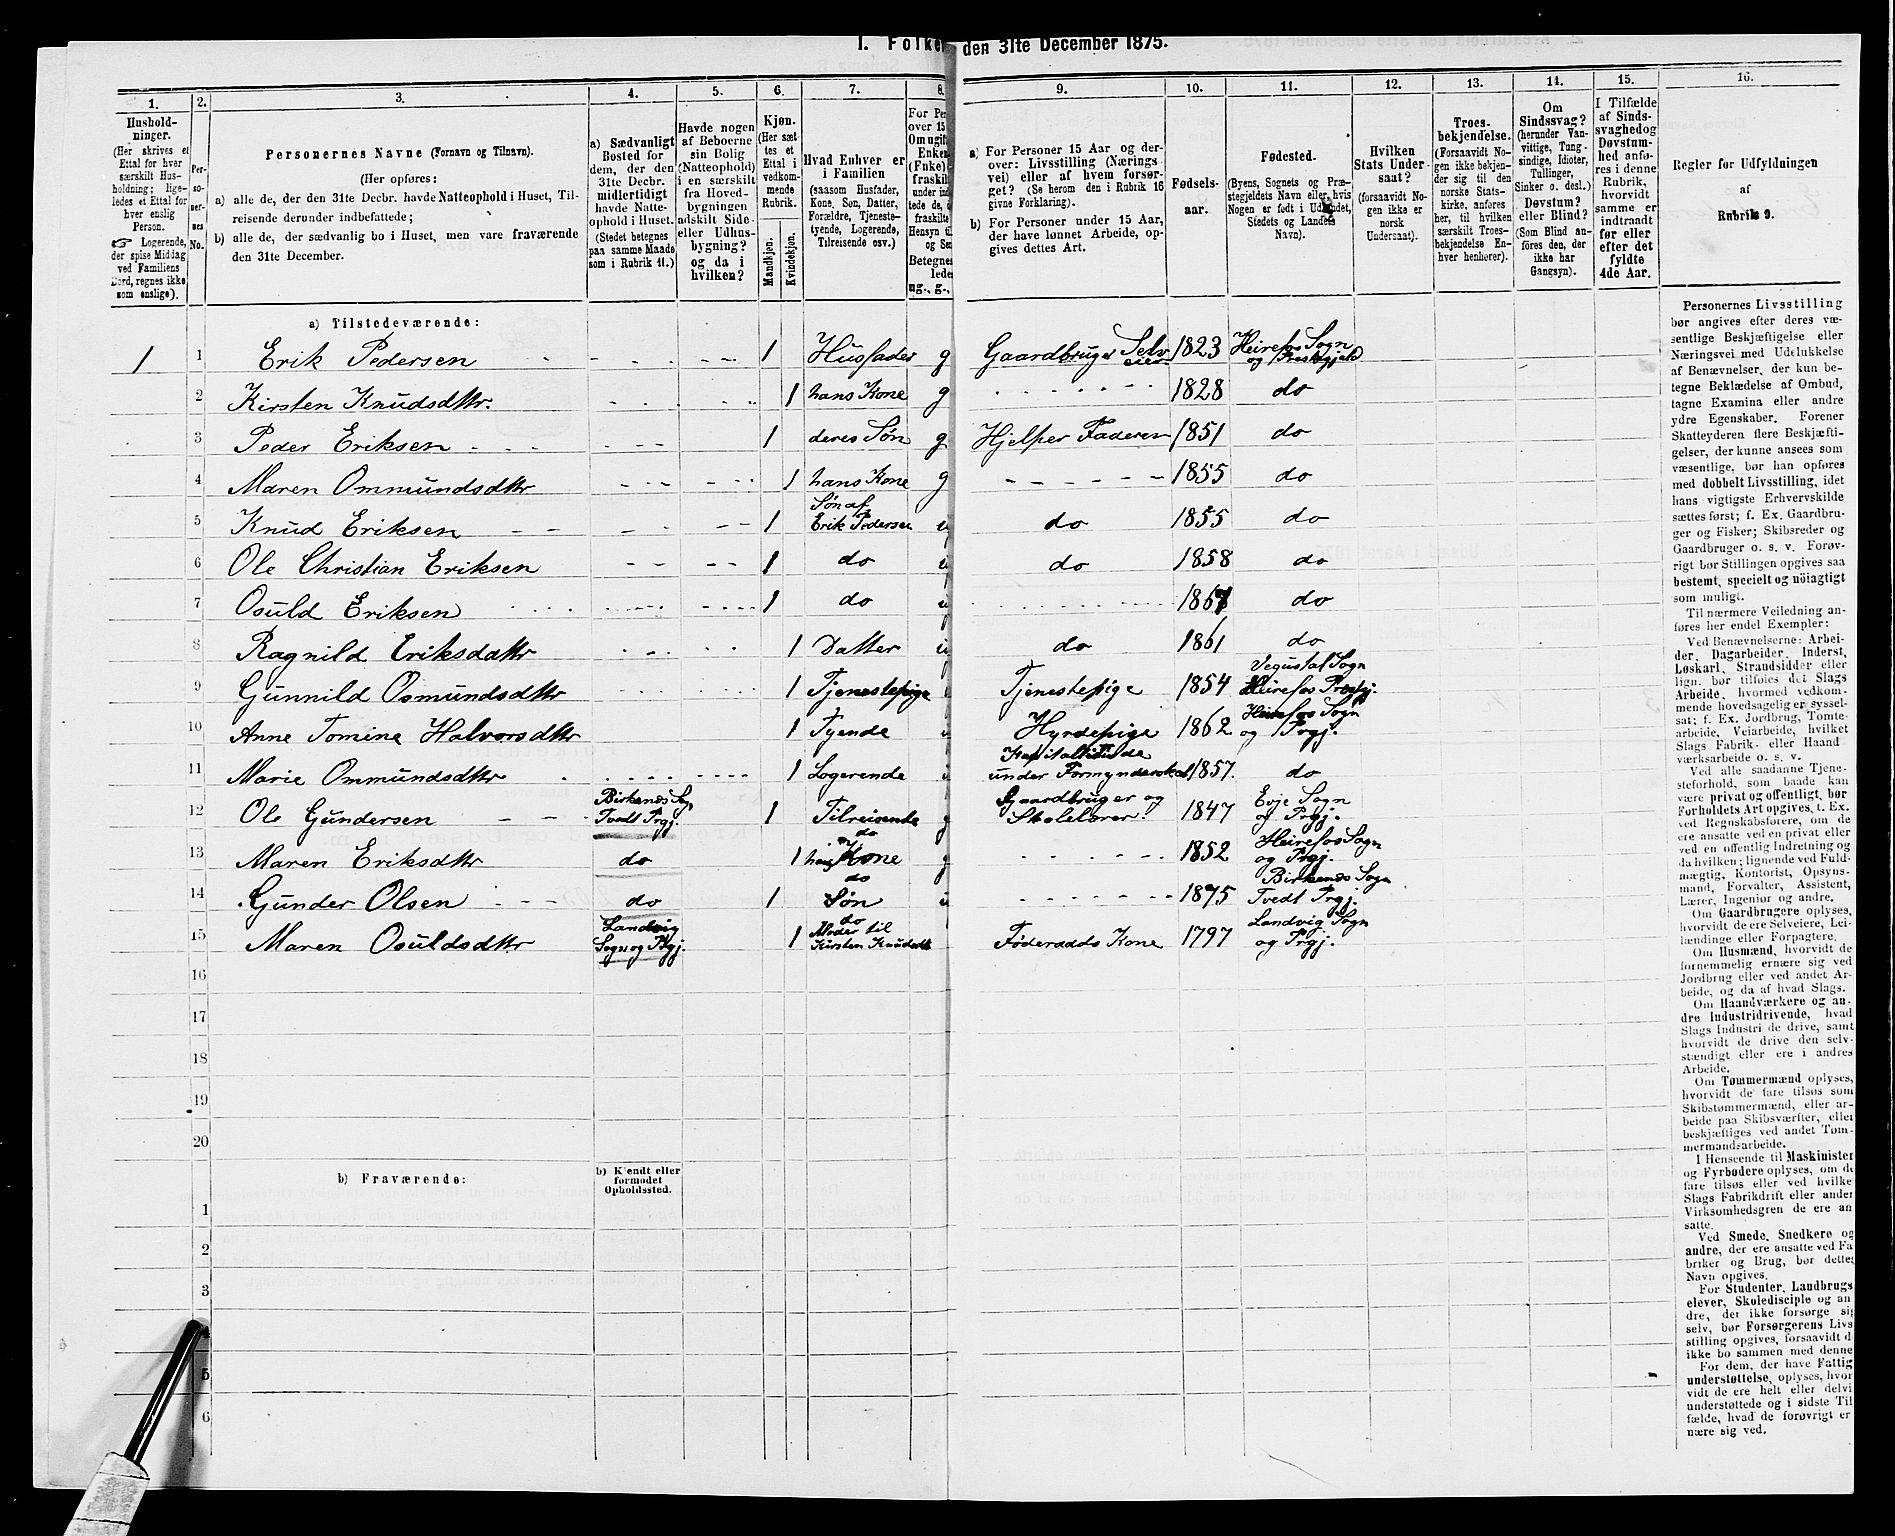 I. Folke den 31te December 1875.
1. 2. 3. 4. 5. 6. 7. 8. 9. 10. 11. 12. 13. 14. 15. 16.
Hushold-
ninger.
(Her skrives et
Ettal for hver
særskilt Hus-
holdning; lige-
ledes et Ettal for
hver enslig
Person.
☞ Logerende,
der spise Middag
ved Familiens
Bord, regnes ikke
som enslige).
Per-
so-
ner-
nes
No.
Personernes Navne (Fornavn og Tilnavn).
(Her opføres:
a) alle de, der den 31te Decbr. havde Natteophold i Huset, Til-
reisende derunder indbefattede;
b) alle de, der sædvanlig bo i Huset, men vare fraværende
den 31te December.
a) Sædvanligt
Bosted for
dem, der den
31te Decbr.
midlertidigt
havde Natte-
ophold i Huset.
(Stedet betegnes
paa samme Maade
som i Rubrik 11.)
Havde nogen
af Beboerne
sin Bolig
(Natteophold)
i en særskilt
fra Hoved-
bygningen
adskilt Side-
eller Udhus-
bygning?
og da i
hvilken?
Kjøn.
(Her sæt-
tes et
Ettal i
vedkom-
mende
Rubrik.
Mandkjøn.
Kvindekjøn.
Hvad Enhver er
i Familien
(saasom Husfader,
Kone, Søn, Datter,
Forældre, Tjeneste-
tyende, Logerende,
Tilreisende osv.)
For Pe
over 15
Om ugift
Enke
(Fnke)
fraskilt
under ind
tede de, 
fraskilte
Hensyn ti
og Se
Betegne
lede
ug., g.,
a) For Personer 15 Aar og der-
over: Livsstilling (Nærings
vei) eller af hvem forsør-
get? (Se herom den i Rubrik 16
givne Forklaring).
b) For Personer under 15 Aar,
der have lønnet Arbeide, op-
gives dettes Art.
Fødsels-
aar.
Fødested.
(Byens, Sognets og Præ-
stegjeldets Navn eller, hvis
Nogen er født i Udlandet,
Stedets og Landets
Navn).
Hvilken
Stats Under-
saat?
(forsaavidt No-
gen ikke er
norsk
Undersaat).
Troes-
bekjendelse.
(Forsaavidt No-
gen ikke bekjen-
der sig til den
norske Stats-
kirke, anføres
her, til hvilken
særskilt Troes-
bekjendelse En-
hver henhører).
Om
Sindssvag?
(herunder Van-
vittige, Tung-
sindige, Idioter,
Tullinger,
Sinker o. desl.)
Døvstum?
eller Blind?
(Som Blind an-
føres den, der
ikke har
Gangsyn).
I Tilfælde
af Sinds-
svaghedog
Døvstum-
hed anfø-
res i denne
Rubrik,
hvorvidt
samme er
indtraadt
før eller
efter det
fyldte
4de Aar.
Regler før Udfyldningen
af
Rubrik 9.
a) Tilstedeværende:
1 1 Erik Pedersen 1 Husfader g Gaardbruger Selv eier 1823 Heirefos Sogn og Prestegjeld
2 Kirsten Knudsdttr. 1 hans Kone g 1828 do
3 Peder Eriksen 1 deres Søn g Hjelper Faderen 1851 do
4 Maren Ommundsdttr 1 hans Kone g 1855 do
5 Knud Eriksen 1 Søn af Erik Pedersen u do 1855 do
6 Ole Christian Eriksen 1 do u do 1858 do
7 Osuld Eriksen 1 do u do
8 Ragnild Eriksdattr 1 Datter u do 1861 do
9 Gunnild Osmundsdttr 1 Tjenestepige Tjenestepige 1854 Sogn Heirefos Prestgj.
10 Anne Tomine Halvorsdttr 1 Tyende u Hyrdepige 1862 Heirefos Sogn og Prgj.
11 Marie Ommundsdttr 1 Logerende under Formynderskab 1857. do
12 Ole Gundersen Birkenes Sogn Tvedt Prgj. 1 Tilreisende g Gaardbruger og Skolelærer 1847 Evje Sogn og Prgj.
13 Maren Eriksdttr do 1 do hans Kone g 1852 Heirefos Sogn og Prgj.
14 Gunder Olsen do 1 do Søn u 1875 Birkenes Sogn Tvedt Prgj.
15 Maren Osuldsdttr Landvig Sogn og Prgj. 1 do Moder til Kirsten Knudsdtt Føderaads Kone 1797 Landvig Sogn og Prgj.
16
17
18
19
20
b) Fraværende:
b) Kjendt eller
formodet
Opholdssted.
1
2
3
4
5
6
Personernes Livsstilling
bør angives efter deres væ-
sentlige Beskjæftigelse eller
Næringsvei med Udelukkelse
af Benævnelser, der kun be-
tegne Beklædelse af Ombud,
tagne Examina eller andre
ydre Egenskaber. Forener
Skatteyderen flere Beskjæfti-
gelser, der kunne ansees som
væsentlige, bør han opføres
med dobbelt Livsstilling, idet
hans vigtigste Erhvervskilde
sættes først; f. Ex. Gaardbru-
ger og Fisker; Skibsreder og
Gaardbruger o. s. v. Forøv-
rigt bør Stillingen opgives saa
bestemt, specielt og nöiagtigt
som muligt.
Til nærmere Veiledning an-
føres her endel Exempler:
Ved Benævnelserne: Arbei-
der, Dagarbeider, Inderst,
Løskarl, Strandsidder eller
lign. bør tilføies det Slags
Arbeide, hvormed vedkom-
mende hovedsagelig er syssel-
sat; f. Ex. Jordbrug, Tomte-
arbeide, Veiarbeide, hvilket
Slags Fabrik- eller Haand
værksarbeide o. s. v.
Ved alle saadanne Tjene-
steforhold, som baade kan
være privat og offentligt, bør
Forholdets Art opgives, t. Ex.
ved Regnskabsførere, om de
ere ansatte ved en privat eller
ved en offentlig Indretning og
da hvilken; lignende ved Fuld-
mægtig, Kontorist, Opsyns-
mand, Forvalter, Assistent,
Lærer, Ingeniør og andre.
Om Gaardbrugere oplyses,
hvorvidt de ere Selveiere, Lei-
lændinge eller Forpagtere.
Om Husmænd, hvorvidt de
fornemmelig ernære sig ved
Jordbrug eller ved andet Ar-
beide, og da af hvad Slags.
Om Haandværkere og an-
dre Industridrivende, hvad
Slags Industri de drive, samt
hvorvidt de drive den selv-
stændigt eller ere i andres
Arbeide.
Om Tømmermænd oplyses,
hvorvidt de fare tilsøs som
Skibstømmermænd, eller ar-
beide paa Skibsværfter, eller
beskjæftiges ved andet Tøm-
mermandsarbeide.
I Henseende til Maskinister
og Fyrbødere oplyses, om de
fare tilsøs eller ved hvilke
Slags Fabrikdrift eller anden
Virksomhedsgren de ere an
satte.
Ved Smede, Snedkere og
andre, der ere ansatte ved Fa
briker og Brug, bør dette
Navn opgives.
For Studenter, Landbrugs
elever, Skoledisciple og an
dre, der ikke forsørge sig
selv, bør Forsørgerens Livs
stilling opgives, forsaavidt d
ikke bo sammen med denne
For dem, der have Fattig
understøttelse, oplyses, hvor
vidt de ere helt eller delvi
understøttede og i sidste Til
fælde, hvad de forøvrigt er
nære sig ved.